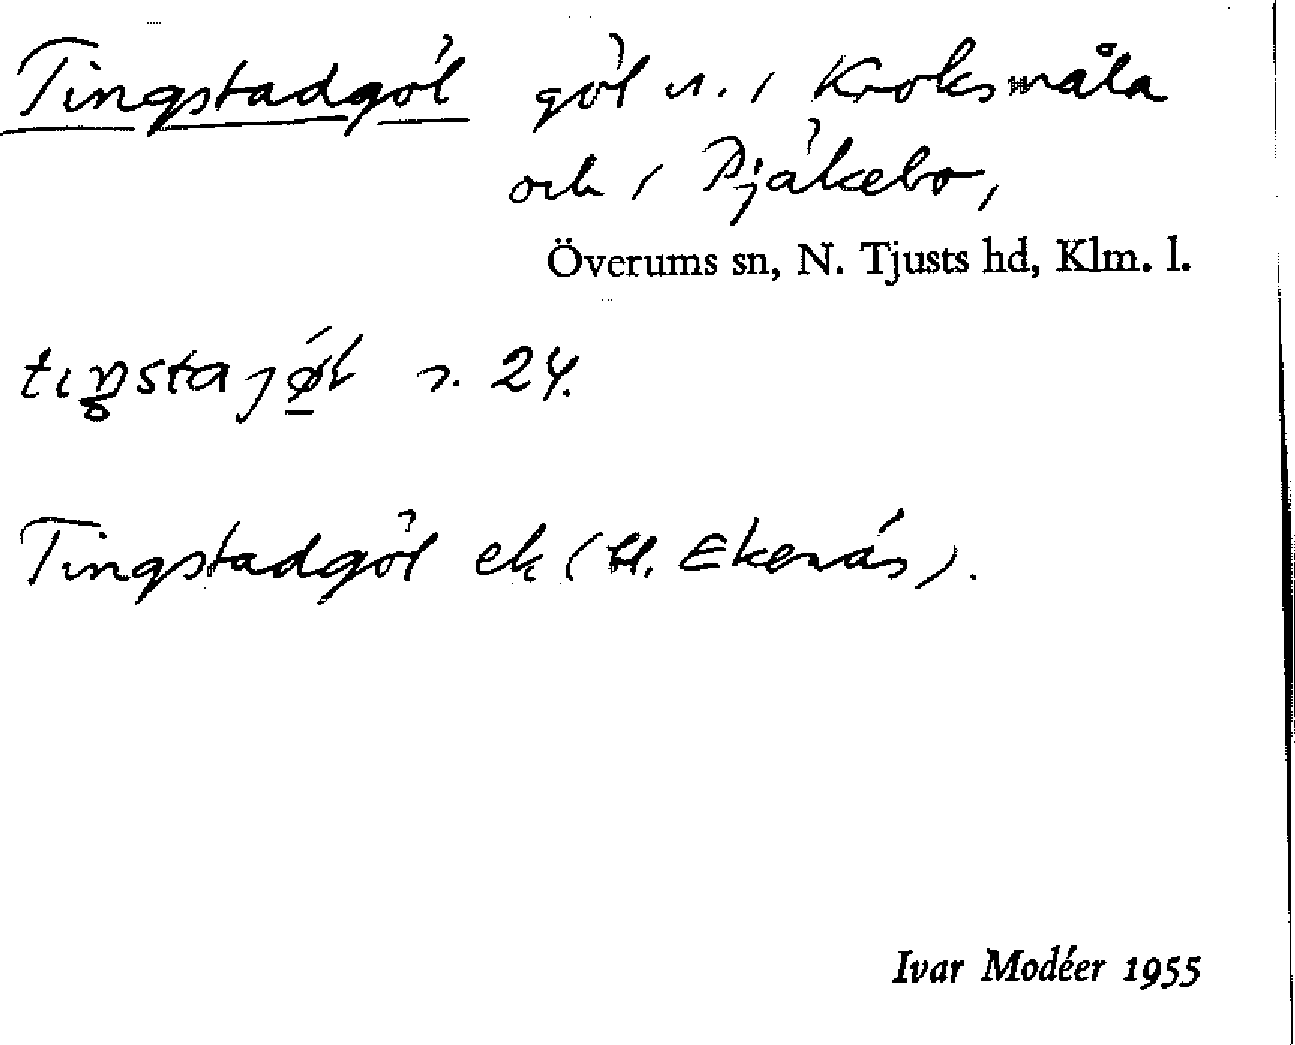 Tingstadgöl göl n. i Kroksmåla
och i Bjäkebo,
Överums sn, N. Tjusts hd, Klm. l.
s. 24.
Tingstadgöl ek (bl. Ekenäs).
Ivar Modéer 1955